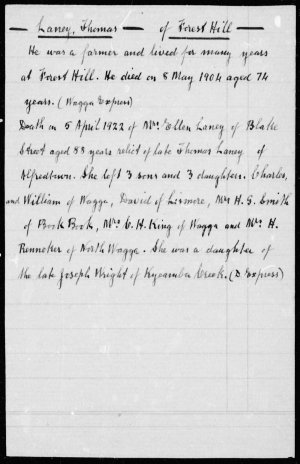 Laney, Thomas — of Forest Hill —
He was a farmer and lived for many years
at Forest Hill. He died on 8 May 1904 aged 74
years. (Wagga Express)
Death on 5 April 1922 of Mrs Ellen Laney of Blake
Street aged 88 years relict of late Thomas Laney of
Alfredtown. She left 3 sons and 3 daughters. Charles,
and William of Wagga, David of Lismore, Mrs H. G. Smith
of Book Book, Mrs C. H. King of Wagga and Mrs H.
Rennetker of North Wagga. She was a daughter of
the late Joseph Wright of Kyeamba Creek. (D. Express)